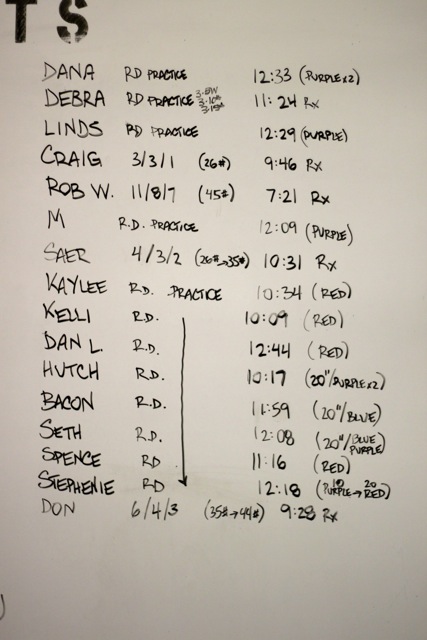 TS
DANA RD PRACTICE 12:33 (PURPLE x2)
DEBRA RD PRACTICE 11:24 Rx
LINDS RD PRACTICE 12:29 (PURPLE)
CRAIG 3/3/1 (26#) 9:46 Rx
ROB W. 11/8/7 (45#) 7:21 Rx
M R.D. PRACTICE 12:09 (PURPLE)
SAER 4/3/2 (26#→35#) 10:31 Rx
KAYLEE R.D. PRACTICE 10:34 (RED)
KELLI R.D. 10:09 (RED)
DAN L. R.D. 12:44 (RED)
HUTCH R.D. 10:17 (20"/PURPLE x2)
BACON R.D. 11:59 (20"/BLUE)
SETH R.D. 12:08 (20"/BLUE PURPLE)
SPENCE RD 11:16 (RED)
STEPHENIE RD 12:18 (10 PURPLE → 20 RED)
DON 6/4/3 (35#→44#) 9:28 Rx